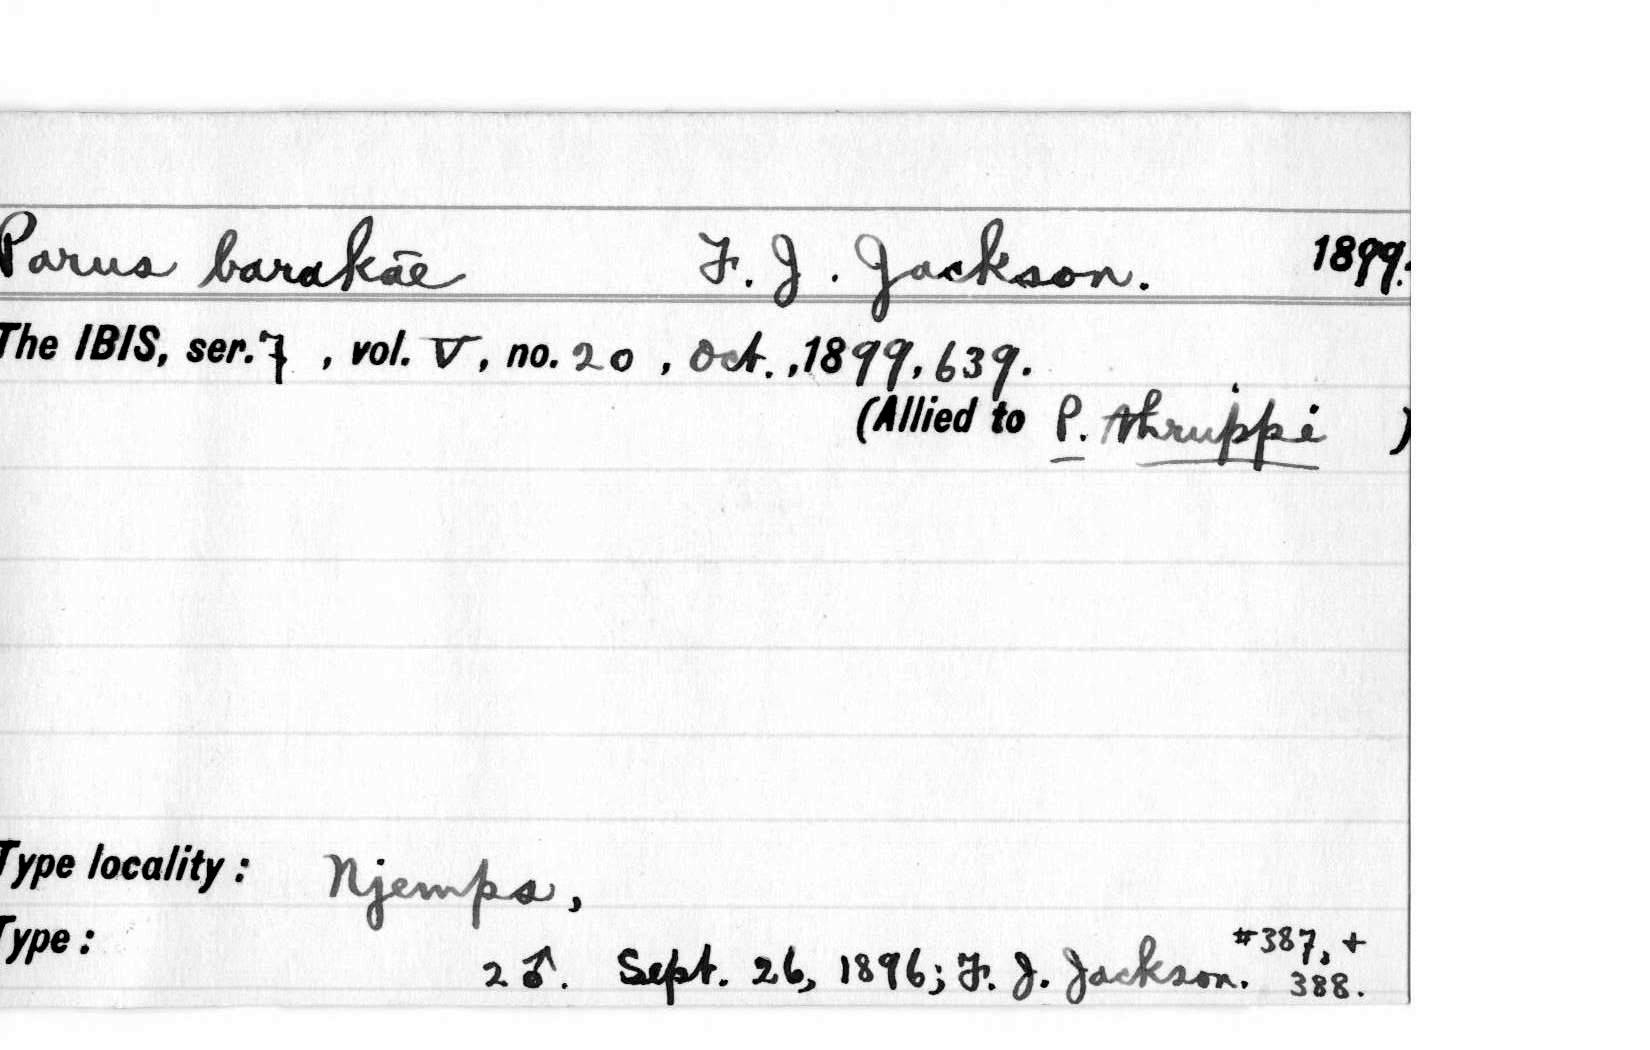 Parus barakae F. J. Jackson. 1899.
The IBIS, ser. 7, vol. V, no. 20, Oct., 1899, 639.
(Allied to P. thruppi )
Type locality: Njemps,
Type:
#387, +
2 ♂. Sept. 26, 1896; F. J. Jackson. 388.